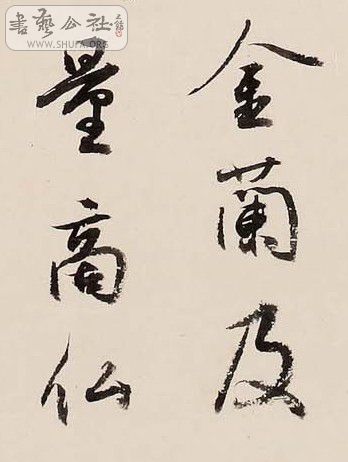 金蘭及
量高仙
書藝公社
WWW.SHUFA.ORG